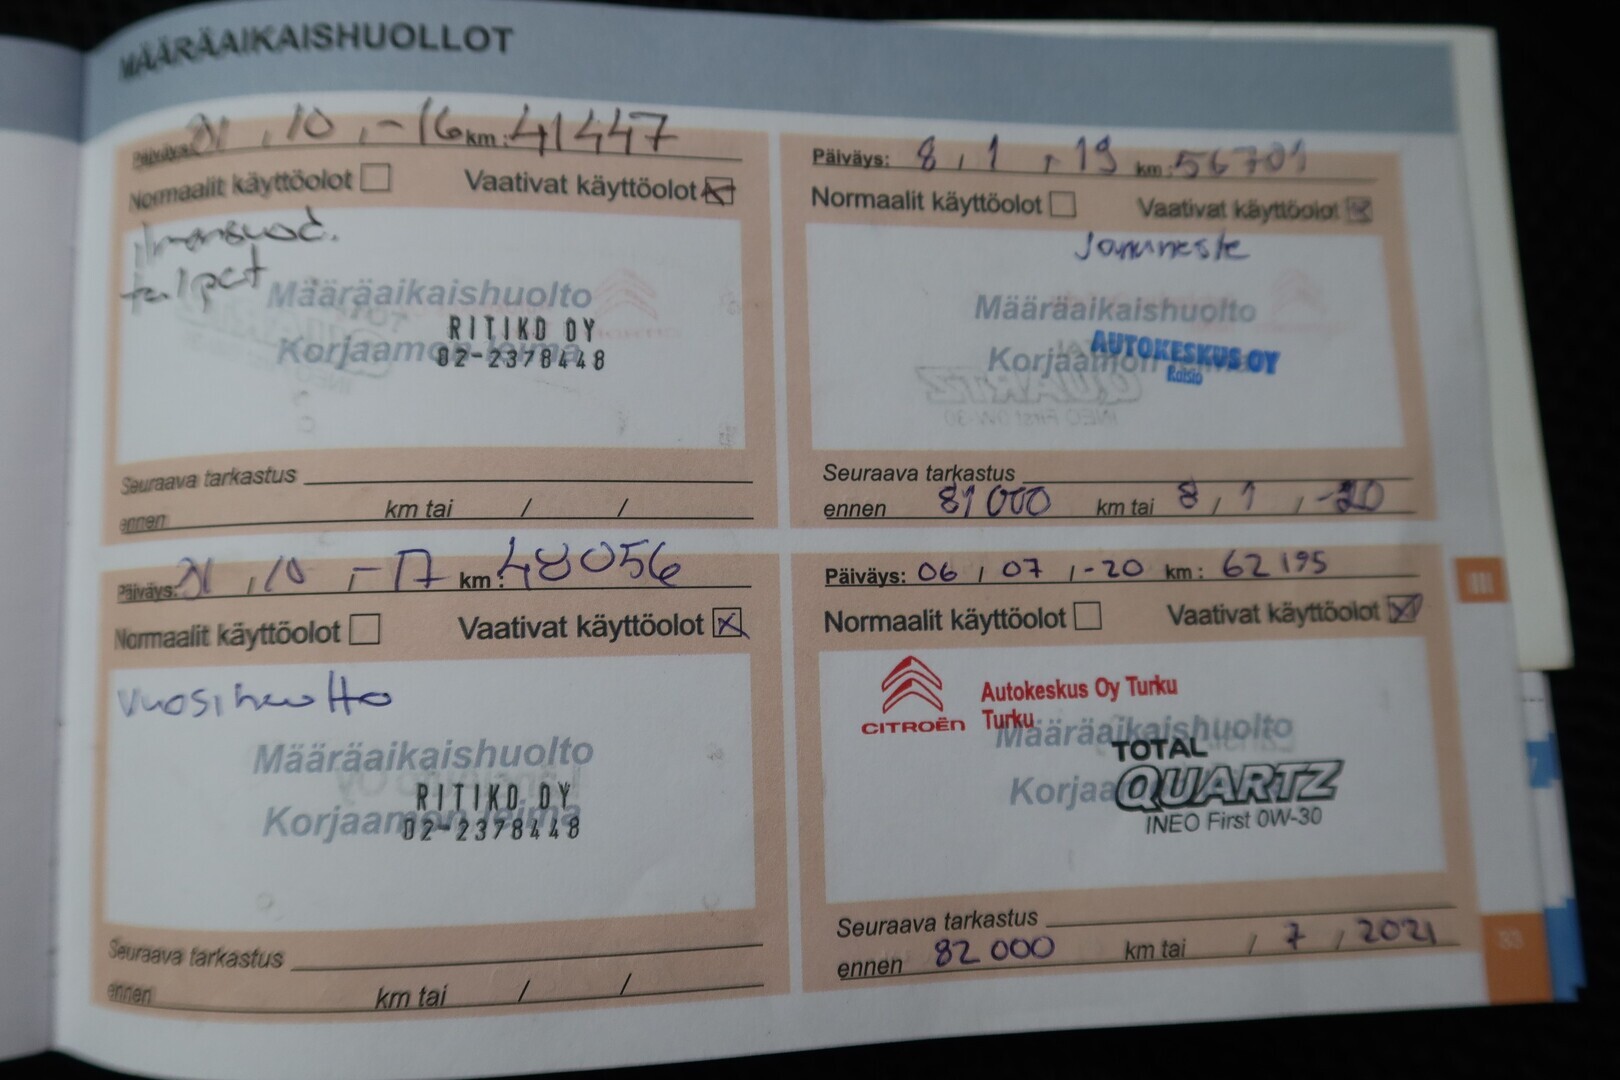 MÄÄRÄAIKAISHUOLLOT
Päiväys: 31 , 10 , -16 km: 41447
Normaalit käyttöolot Vaativat käyttöolot
ilmansuod.
tulpat
Määräaikaishuolto
RITIKO OY
Korjaamon leima
02-2378448
Seuraava tarkastus
ennen km tai / /
Päiväys: 8 , 1 , -19 km: 56701
Normaalit käyttöolot Vaativat käyttöolot
Jarruneste
Määräaikaishuolto
AUTOKESKUS OY
Korjaamon
Raisio
QUARTZ
INEO First 0W-30
Seuraava tarkastus
ennen 81000 km tai 8 , 1 , -20
Päiväys: 31 , 10 , -17 km: 48056
Normaalit käyttöolot Vaativat käyttöolot
Vuosihuolto
Määräaikaishuolto
RITIKO OY
Korjaamon leima
02-2378448
Seuraava tarkastus
ennen km tai / /
Päiväys: 06 / 07 / -20 km: 62195
Normaalit käyttöolot Vaativat käyttöolot
CITROËN
Autokeskus Oy Turku
Turku
Määräaikaishuolto
TOTAL
Korjaa
QUARTZ
INEO First 0W-30
Seuraava tarkastus
ennen 82 000 km tai / 7 / 2021
III
33